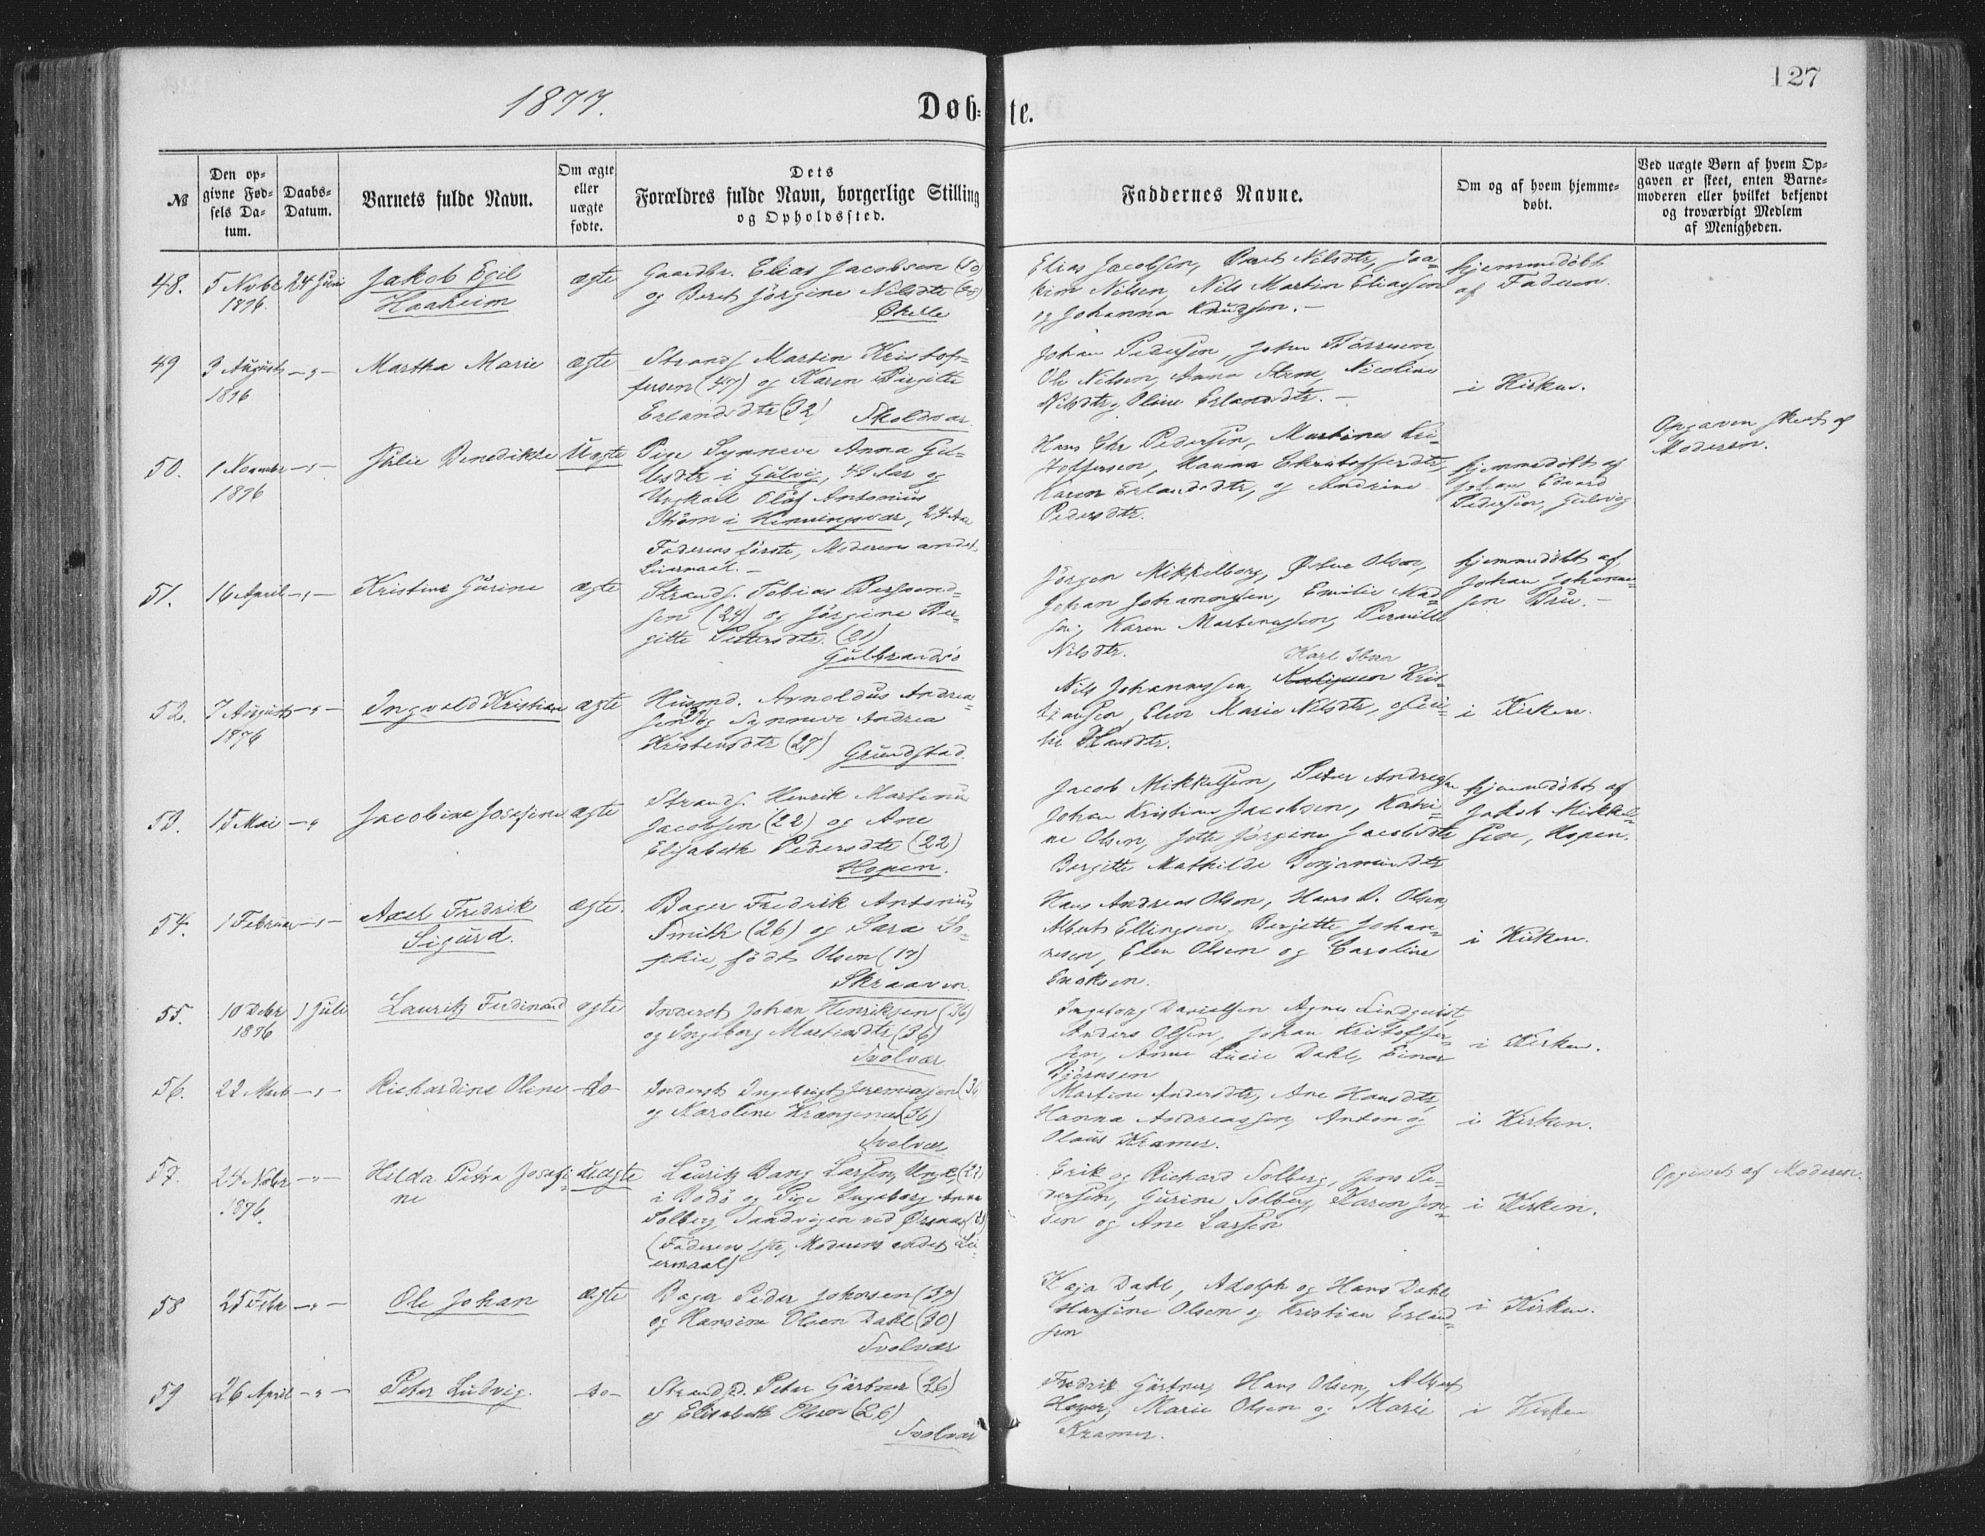 127
1877.
Døb-
te.
№
Den op-
givne Fød-
sels Da-
tum.
Daabs-
Datum.
Barnets fulde Navn.
Om ægte
eller
uægte
fødte.
Dets
Forældres fulde Navn, borgerlige Stilling
og Opholdssted.
Faddernes Navne.
Om og af hvem hjemme-
døbt.
Ved uægte Børn af hvem Op-
gaven er skeet, enten Barne-
moderen eller hvilket bekjendt
og troværdigt Medlem
af Menigheden.
48.
5 Novbr
1876.
24 Juni
Jakob Egil
Haakeim
ægte
Gaardbr. Elias Jacobsen (50)
og Beret Jörgine Nilsdtr
Elias Jacobsen, Beret Nilsdtr, Joa-
kim Nilsen, Nils Martin Eliassen
og Johanna Knudsen. —
hjemmedöbt
af Faderen.
49
3 August
1876
— „ —
Martha Marie
ægte
Strands. Martin Kristof-
fersen (47) og Karen Birgitte
Erlandsdtr (32) Skoldvær.
Johan Pedersen, John
Ole Nilsen, Anna Steen, Nicoline
Nilsdtr, Oline Erlandsdtr. —
i Kirken.
50.
1 November
1876
— „ —
Julie Benedikte
Uægte
Pige Synneve Anna
i Gulvig, 42 Aar og
Ungkarl Olaf Antonius
Ström i Henningsvær, 24 Aar
Faderens förste, Moderens andet
Leiermaal. —
Hans Chr Pedersen, Martines Kri-
stoffersen, Hanna Christoffersdtr,
Karen Erlandsdtr, og Andrine
Pedersdtr.
hjemmedöbt af
Johan Edvard
Pedersen, Gulvig
Opgaven skeet af
Moderen.
51.
16 April
— „ —
Kristine Gurine
ægte
Strands. Tobias
sen (24) og Jörgine Bir-
gitte Pettersdtr. (21)
Gulbrandsö
Jörgen Mikkelborg, Olsen,
Johan Johannesen, Emilie Mad-
sen, Karen Martinussen, Pernille
Nilsdtr.
hjemmedöbt af
Johan Johanne-
sen
52.
7 August
1876
— „ —
Ingvald Kristian
ægte
Husmd. Arnoldus Andrea-
sen og Synneve Andrea
Kristensdtr (27) Grundstad.
Karl Iban
Nils Johannessen, Kris-
tiansen, Elen Marie Nilsdtr,
Hansdtr.
i Kirken.
53.
15 Mai
— „
Jacobine Josefine
ægte
Strands. Henrik Martinus
Jacobsen (22) og Ane
Elisabeth Pedersdtr (22)
Hopen.
Jacob Mikkelsen, Peter Andreasen
Johan Kristian Jacobsen, Katri-
ne Olsen, Jörgine Jacobsdtr
Bergitte Mathilde Benjaminsdtr
hjemmedöbt af
Jakob Mikkel-
sen, Hopen.
54.
1 Februar
— „ —
Axel Fredrik
Sigurd.
ægte.
Bager Fredrik Antonius
Smith (26) og Sara So-
phie, födt Olsen (17)
Skraaven.
Hans Andreas Olsen, Hans D. Olsen,
Albert Ellingsen, Bergitte Johan-
nesen, Elen Olsen og Caroline
Enoksen.
i Kirken.
55.
10 Debr
1876
1 Juli
Lauritz Ferdinand
ægte
Inderst Johan Henriksen (36)
og Ingeborg Martinsdtr (36)
Svolvær
Ingeborg Danielsen Agnes Lindquist,
Anders Olsen, Johan Kristoffer-
sen, Anne Lucie Dahl, Einar
Björnsen
i Kirken.
56.
22 Marts
— „ —
Richardine Oline
—do—
Inderst Ingebrigt Jeremiassen (36)
og Karoline (36)
Svolvær
Martine Andersdtr, Ane Hansdtr,
Hanna Andreassen, Anton og
Olaus Kramer.
i Kirken.
57.
24 Nobr
1876.
— „ —
Hilda Petra Josefi-
ne
uægte
Lauritz Bang Larsen, Ungk (22)
i Bodö og Pige Ingeborg Anna
Solberg, Sandvigen ved
(Faderens 1ste, Moderens andet Lei-
ermaal)
Erik og Richard Solberg, Jens Pe-
dersen, Gurine Solberg, Karen Jen-
sen og Ane Larsen
i Kirken.
Opgivet af Moderen.
58
25 Febr
— „ —
Ole Johan
ægte
Bager Peder Johnsen (37)
og Hansine Olsen Dahl (30)
Svolvær
Kaja Dahl, Adolph og Hans Dahl
Hansine Olsen og Kristian Erland-
sen
i Kirken.
59
26 April
— „ —
Peter Ludvig.
—do—
Strands. Peter Gärtner (26)
og Elisabeth Olsen (26)
Svolvær
Fredrik Gärtner, Hans Olsen, Albert
Hoyer, Marie Olsen og Marie
Kramer.
i Kirken